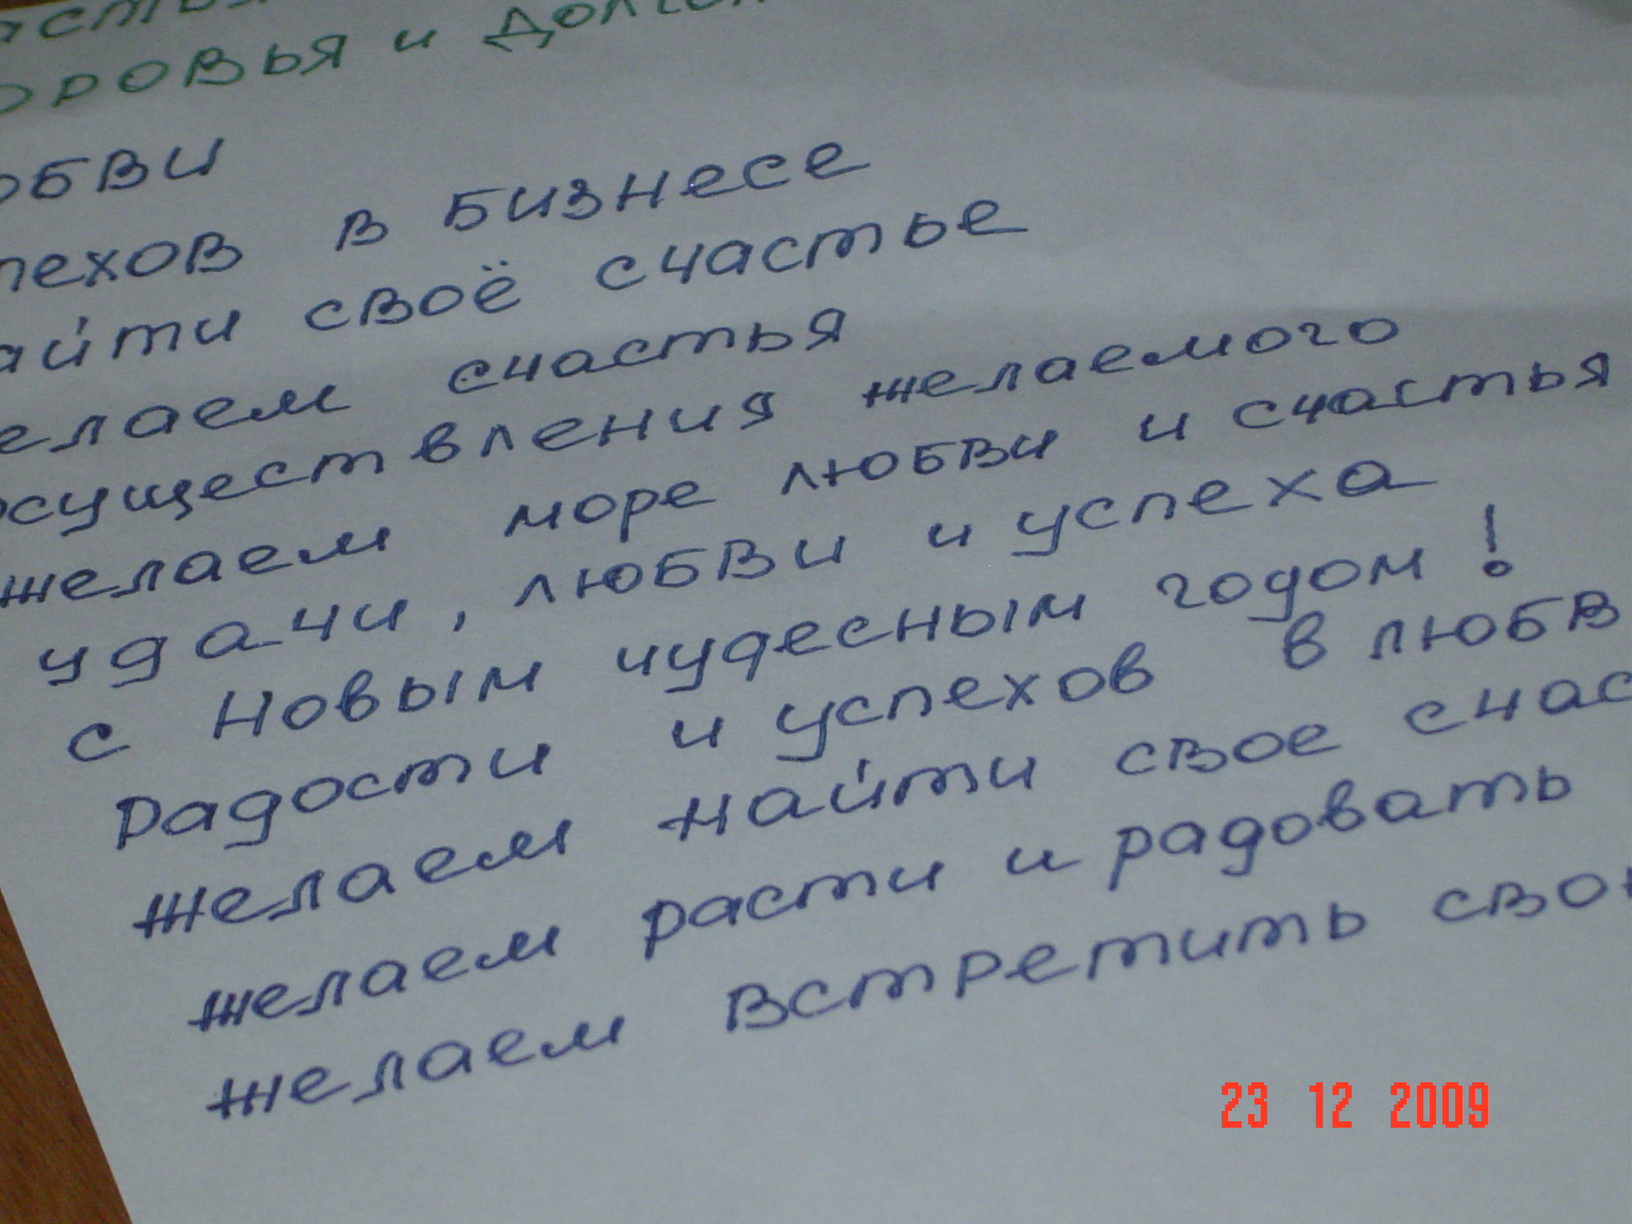 и
любви
в бизнесе
своё счастье
счастья
осуществления желаемого
желаем море любви и счастья
удачи, любви и успеха
с Новым чудесным годом!
Радости и успехов в
желаем найти свое
желаем расти и радовать
желаем встретить
23 12 2009